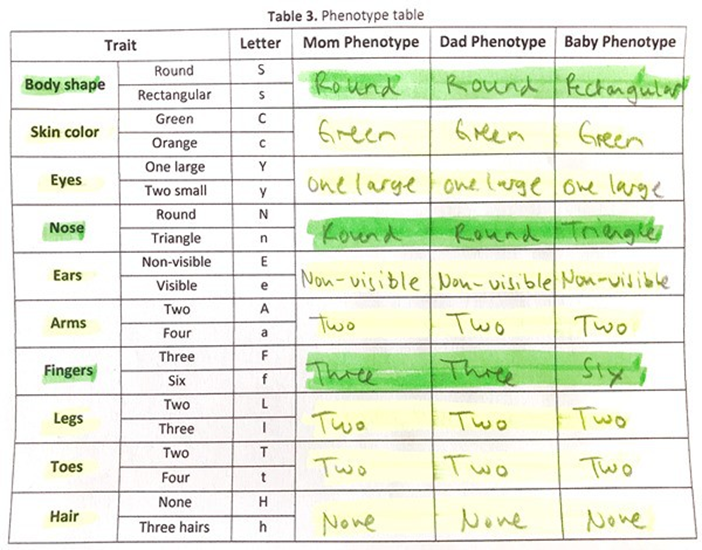 Table 3. Phenotype table
Trait Letter Mom Phenotype Dad Phenotype Baby Phenotype
Body shape Round S Round Round Rectangular
Rectangular s
Skin color Green C Green Green Green
Orange c
Eyes One large Y one large one large one large
Two small y
Nose Round N Round Round Triangle
Triangle n
Ears Non-visible E Non-visible Non-visible Non-visible
Visible e
Arms Two A Two Two Two
Four a
Fingers Three F Three Three Six
Six f
Legs Two L Two Two Two
Three l
Toes Two T Two Two Two
Four t
Hair None H None None None
Three hairs h